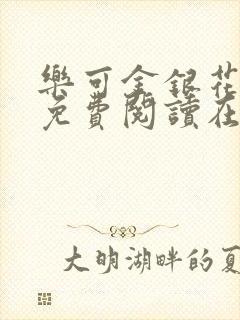 樂可金銀花
免費閱讀在
大明湖畔的夏